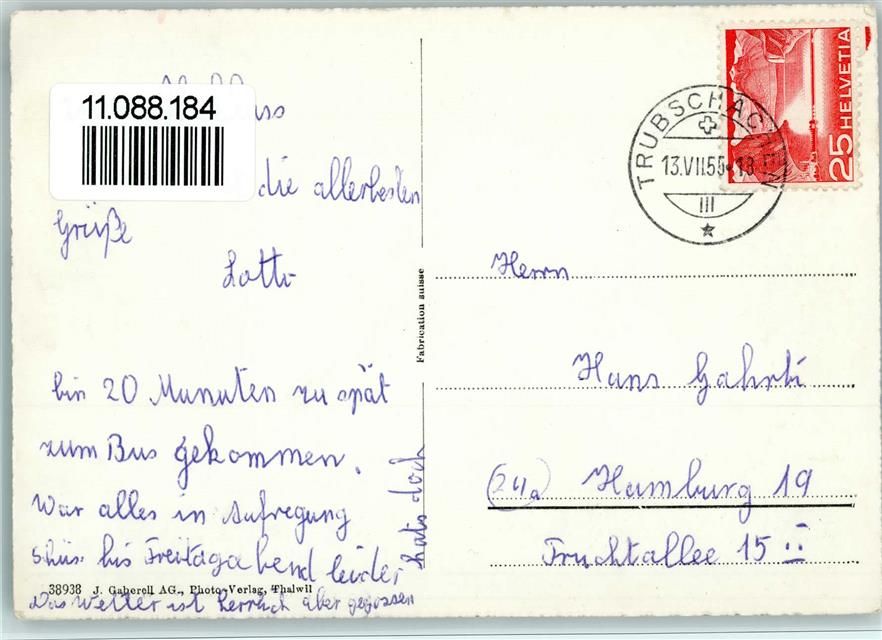 11.088.184
die allerbesten
Grüße
Lotti
bin 20 Minuten zu spät
zum Bus gekommen.
War alles in Aufregung
bis Freitagabend leider
Das Wetter ist herrlich aber gegossen
hats doch
38938 J. Gaberell AG., Photo-Verlag, Thalwil
Fabrication suisse
TRUBSCHACHEN
13.VII.55-18
III
25 HELVETIA
Herrn
Hans
(24a) Hamburg 19
Fruchtallee 15 II